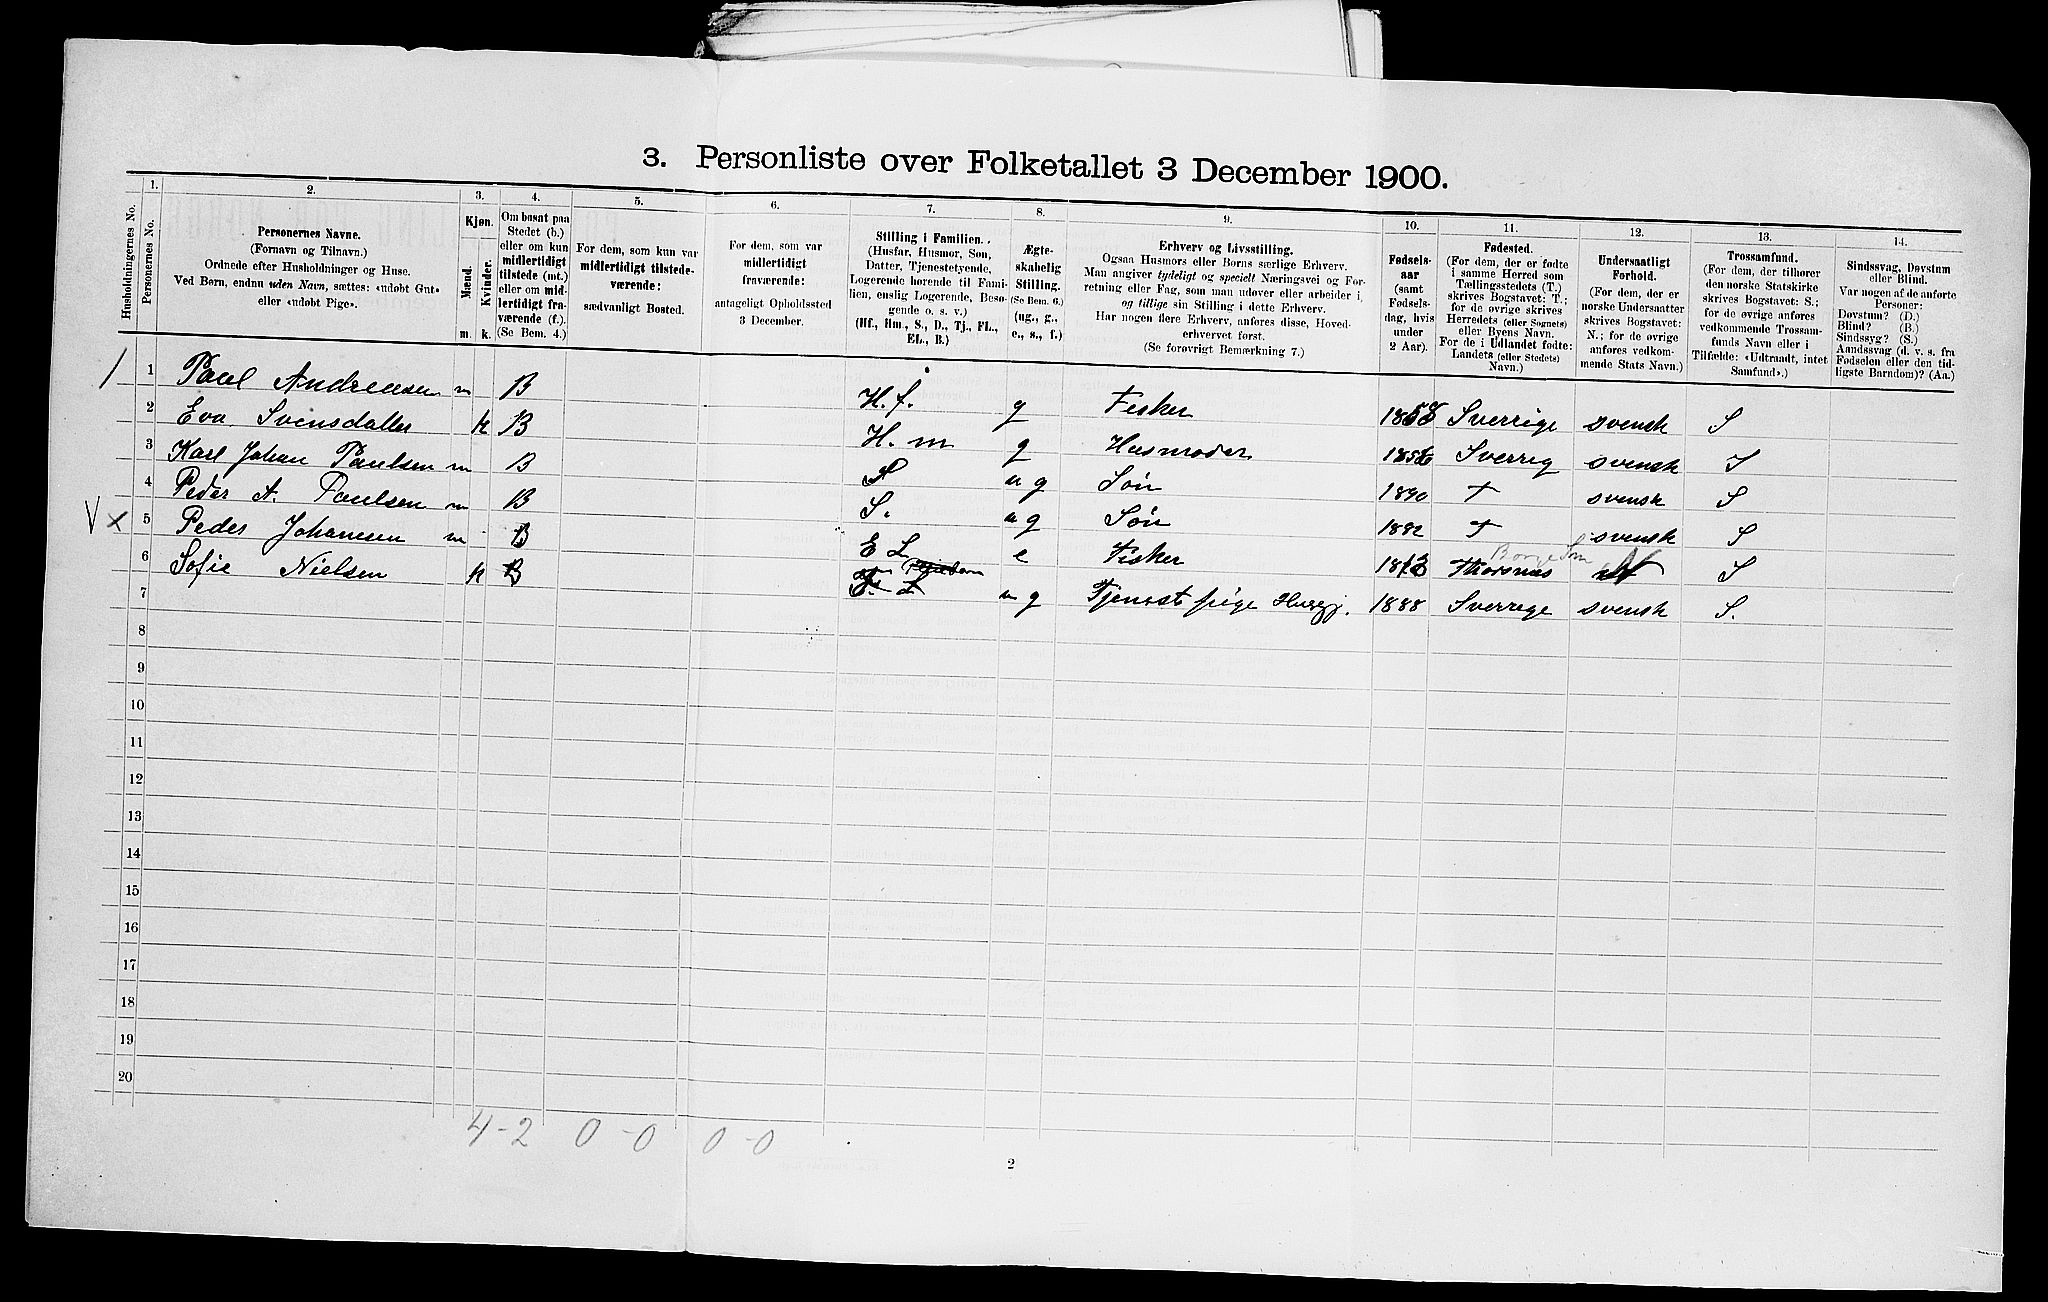 3. Personliste over Folketallet 3 December 1900.
Husholdningernes No.
1.
Personernes No.
2.
Personernes Navne.
(Fornavn og Tilnavn.)
Ordnede efter Husholdninger og Huse.
Ved Børn, endnu uden Navn, sættes: «udøbt Gut»
eller «udøbt Pige».
3.
Kjøn.
Mænd.
Kvinder.
m. k.
4.
Om bosat paa
Stedet (b.)
eller om kun
midlertidigt
tilstede (mt.)
eller om mid-
lertidigt fra-
værende (f.).
(Se Bem. 4.)
5.
For dem, som kun var
midlertidigt tilstede-
værende:
sædvanligt Bosted.
6.
For dem, som var
midlertidigt
fraværende:
antageligt Opholdssted
3 December.
7.
Stilling i Familien.
(Husfar, Husmor, Søn,
Datter, Tjenestetyende,
Logerende hørende til Fami-
lien, enslig Logerende, Besø-
gende o. s. v.)
(Hf., Hm., S., D., Tj., FL.,
EL., B.)
8.
Ægte-
skabelig
Stilling.
(Se Bem. 6.)
(ug., g.,
e., s., f.)
9.
Erhverv og Livsstilling.
Ogsaa Husmors eller Børns særlige Erhverv.
Man angiver tydeligt og specielt Næringsvei og For-
retning eller Fag, som man udøver eller arbeider i,
og tillige sin Stilling i dette Erhverv.
Har nogen flere Erhverv, anføres disse, Hoved-
erhvervet først.
(Se forøvrigt Bemærkning 7.)
10.
Fødsels-
aar
(samt
Fødsels-
dag, hvis
under
2 Aar).
11.
Fødested.
(For dem, der er fødte
i samme Herred som
Tællingsstedets (T.)
skrives Bogstavet: T.;
for de øvrige skrives
Herredets (eller Sognets)
eller Byens Navn.
For de i Udlandet fødte:
Landets (eller Stedets)
Navn.)
12.
Undersaatligt
Forhold.
(For dem, der er
norske Undersaatter
skrives Bogstavet:
N.; for de øvrige
anføres vedkom-
mende Stats Navn.)
13.
Trossamfund.
(For dem, der tilhører
den norske Statskirke
skrives Bogstavet: S.;
for de øvrige anføres
vedkommende Trossam-
funds Navn eller i
Tilfælde: «Udtraadt, intet
Samfund».)
14.
Sindssvag, Døvstum
eller Blind.
Var nogen af de anførte
Personer:
Døvstum? (D.)
Blind? (B.)
Sindssyg? (S.)
Aandssvag (d. v. s. fra
Fødselen eller den tid-
ligste Barndom)? (Aa.)
1 Paul Andreasen m B H.f. g Fisker 1858 Sverrige svensk S
2 Eva Svensdatter k B H.m g Husmoder 1856 Sverrig svensk S
3 Karl Johan Paulsen m B S ug Søn 1890 T svensk S
4 Peder A. Paulsen m B S. ug Søn 1892 T svensk S
Borge Sm
V x 5 Peder Johansen m B E L e Fisker Thorsnæs N S
6 Sofie Nielsen k B ug Tjenestpige Husgj. 1888 Sverrige svensk S.
7
8
9
10
11
12
13
14
15
16
17
18
19
20
4-2 0-0 0-0
2